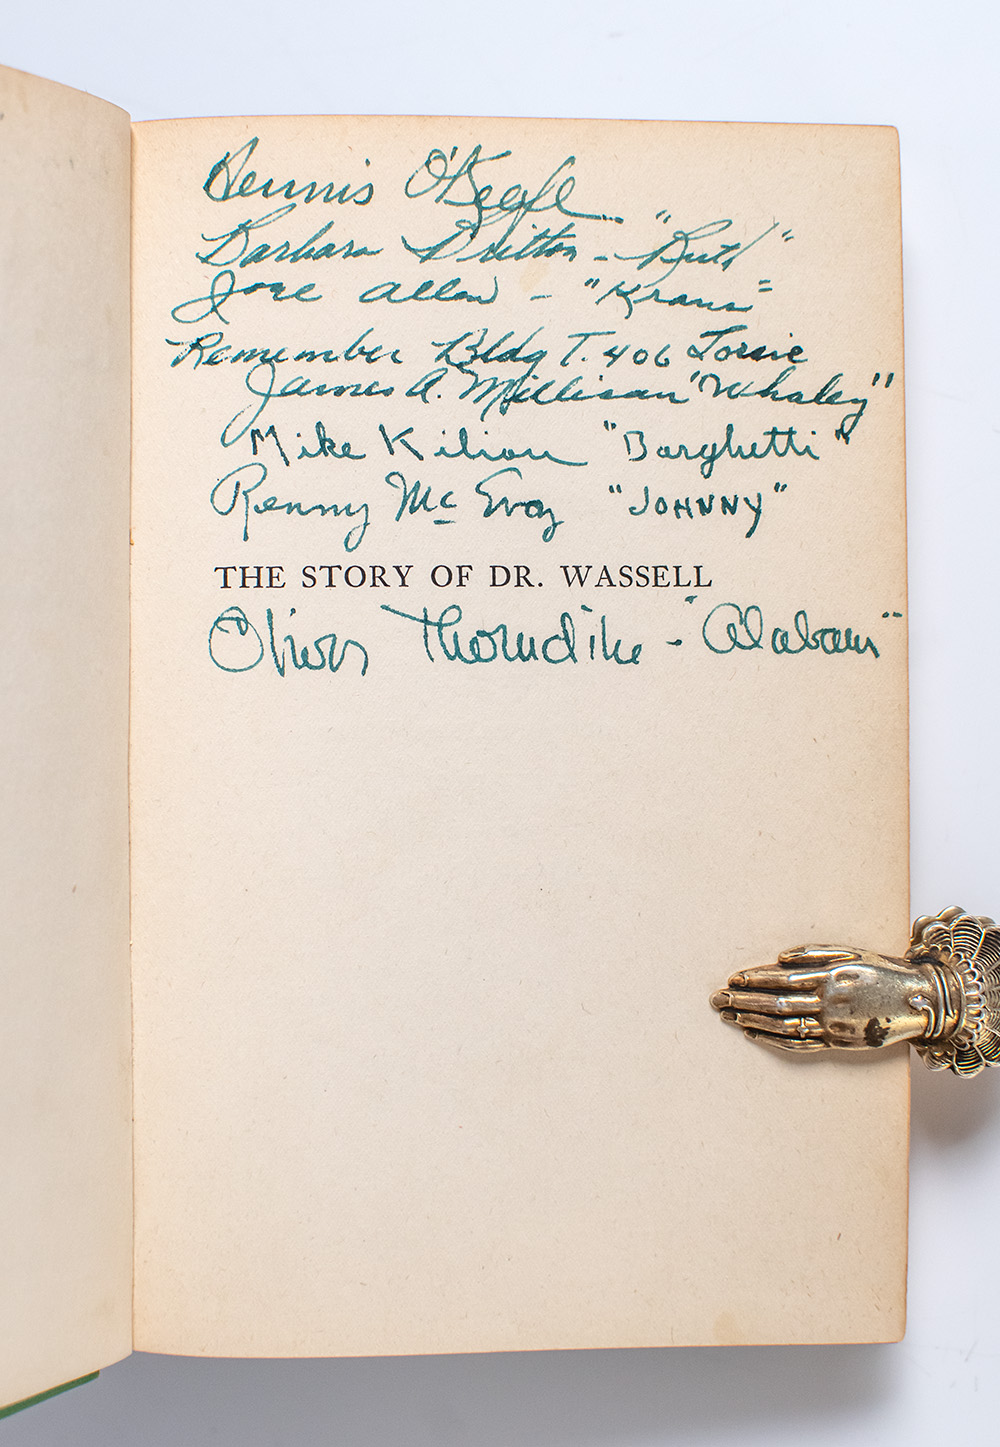 Dennis O'Keefe
Barbara Britton - "Ruth"
Joel Allen - "Kraus"
Remember Bldg T. 406
James A. Millican "Whaley"
Mike Kilian "Borghetti"
Renny McEvoy "JOHNNY"
THE STORY OF DR. WASSELL
Oliver Thorndike - "Alabam"